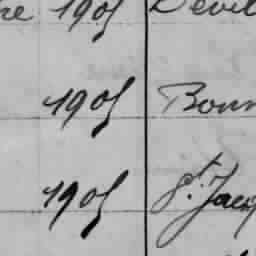 re 1905 Devil
1905 Bonn
1905 St. Jacq